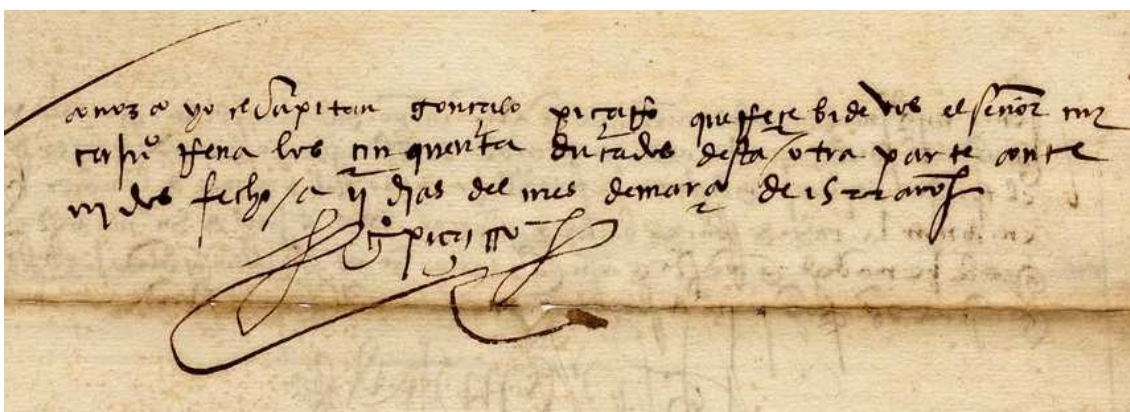 conozco yo el capitan gonçalo piçarro que rreçebi de vos el señor
rrena los cinquenta ducados desta / otra parte conte
nidos fecho / a ii dias del mes de março de 1522 años
gº piçarro